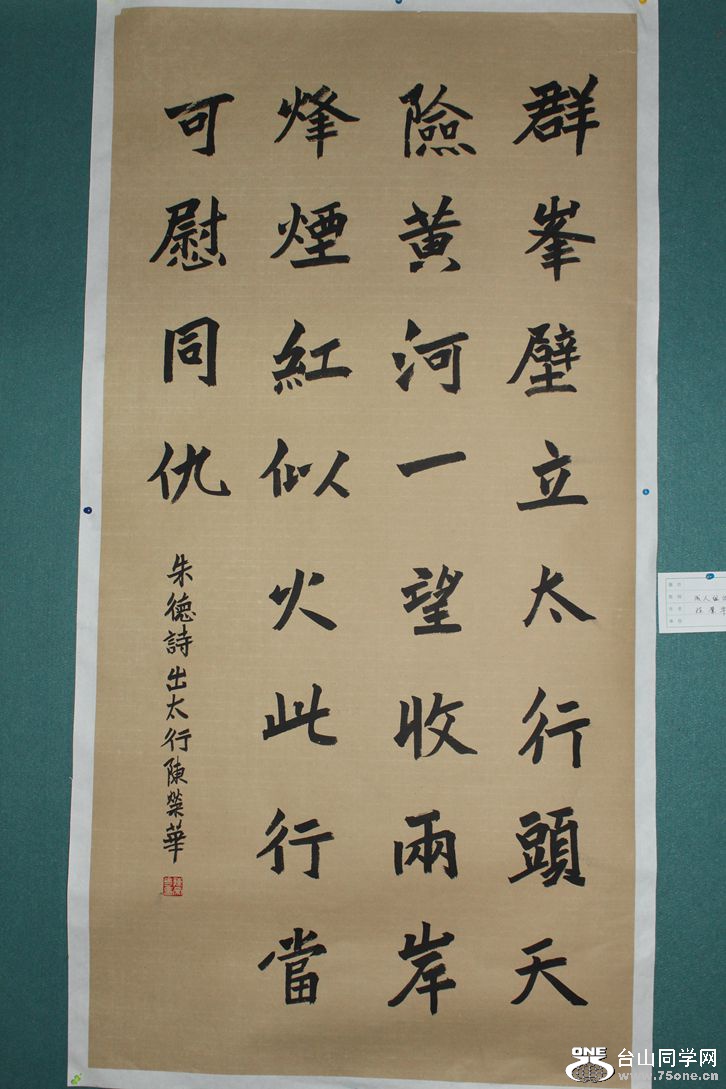 群峯壁立太行頭天
險黃河一望收兩岸
烽煙紅似火此行當
可慰同仇
朱德詩出太行陳榮華
ONE
台山同学网
www.75one.cn